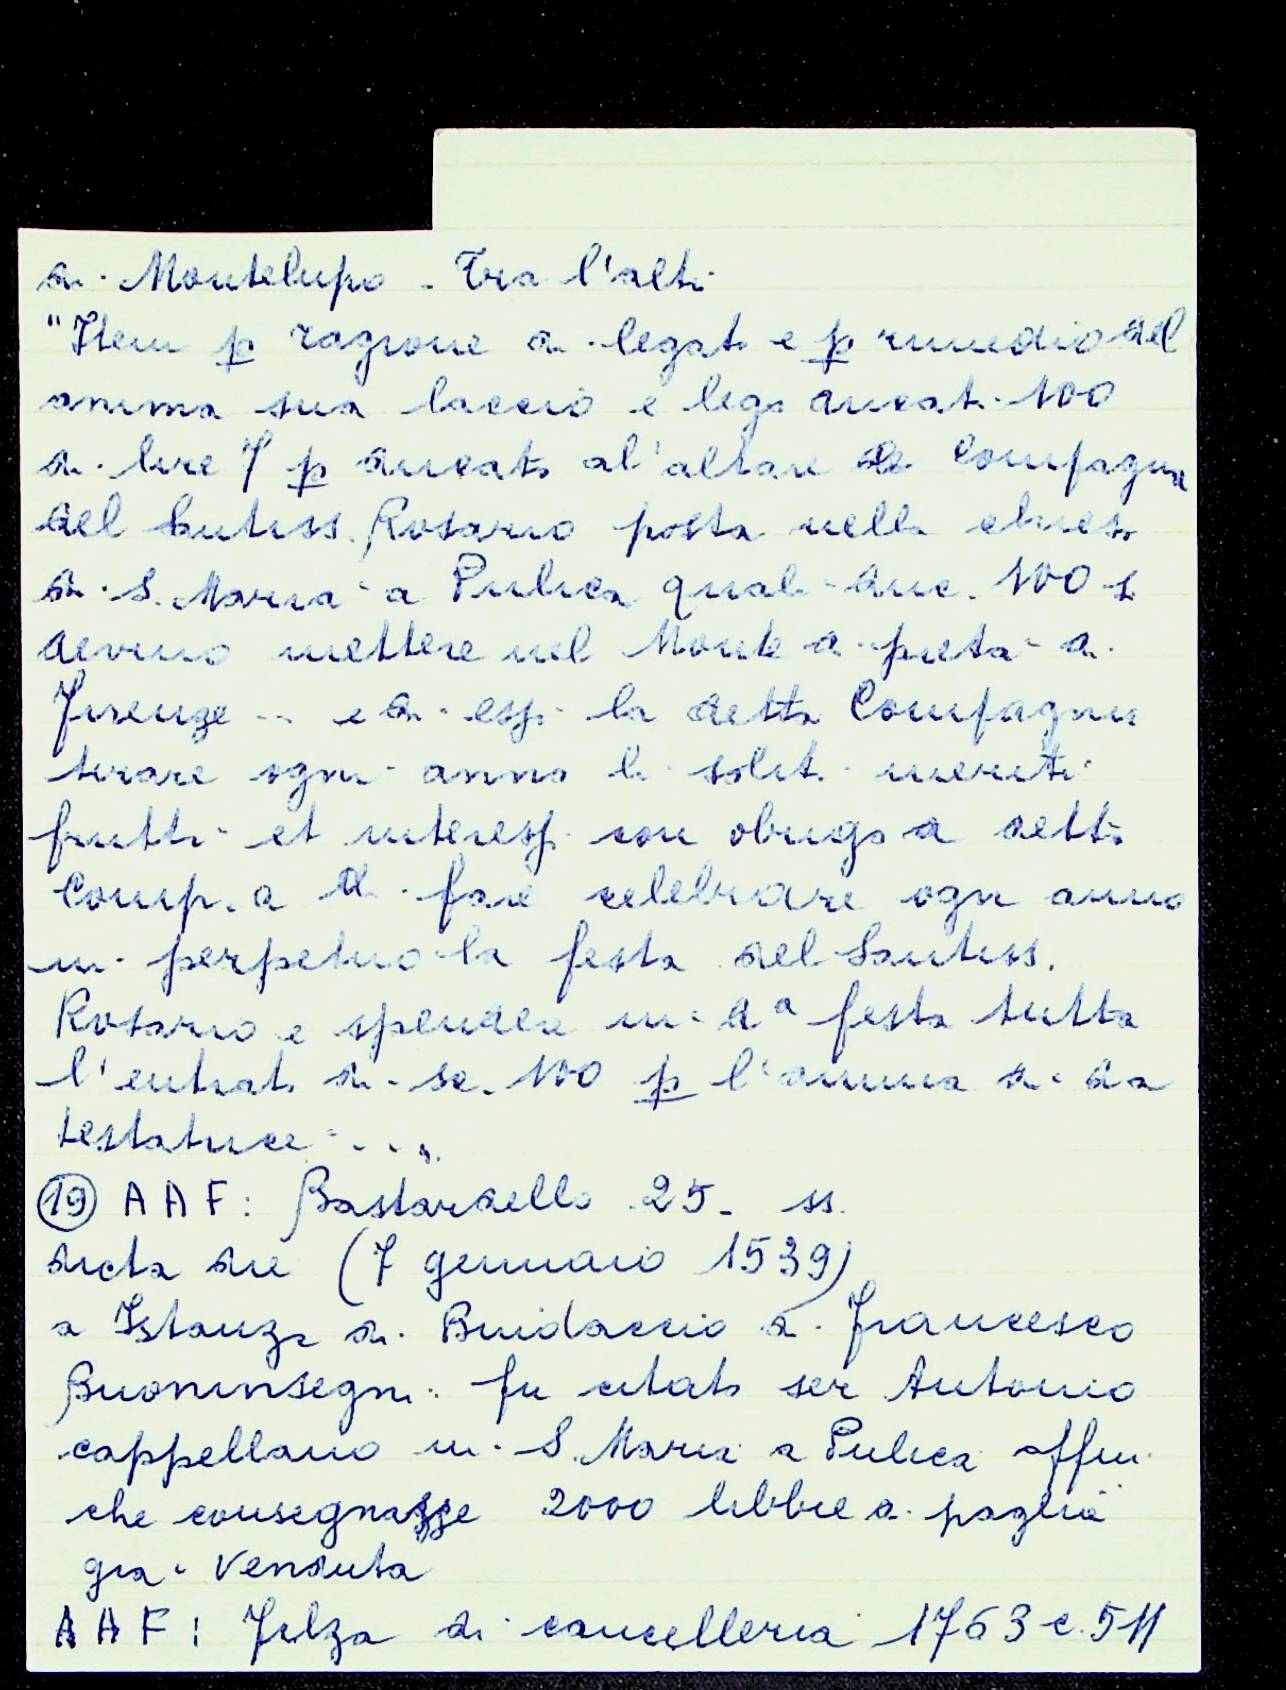 di Montelupo - Tra l'altr.
"Item p ragione di legato e p rimedio del
anima sua lacciò e legò ducati 100
di lire 7 p ducato al'altare de Compagnia
del Santiss. Rosario posta nella chiesa
di S. Maria a Pulica quali duc. 100 si
devino mettere nel Monte di pietà di
Firenze -- e di essi la detta Compagnia
tirare ogni anno li soliti meriti
frutti et interessi con obrigo a detta
Comp.a di fare celebrare ogni anno
in perpetuo la festa del Santiss.
Rosario e spendere in da festa tutta
l'entrata di sc. 100 p l'anima di da
testatrice ...".
(19) A A F: Bastardello 25- ss.
dicta die (7 gennaio 1539)
a Istanza di Buidaccio di Francesco
Buoninsegni fu citato ser Antonio
cappellano in S. Maria a Pulica affin
che consegnasse 2000 libbre di paglia
già venduta
A A F: Filza di cancelleria 1763 c. 511